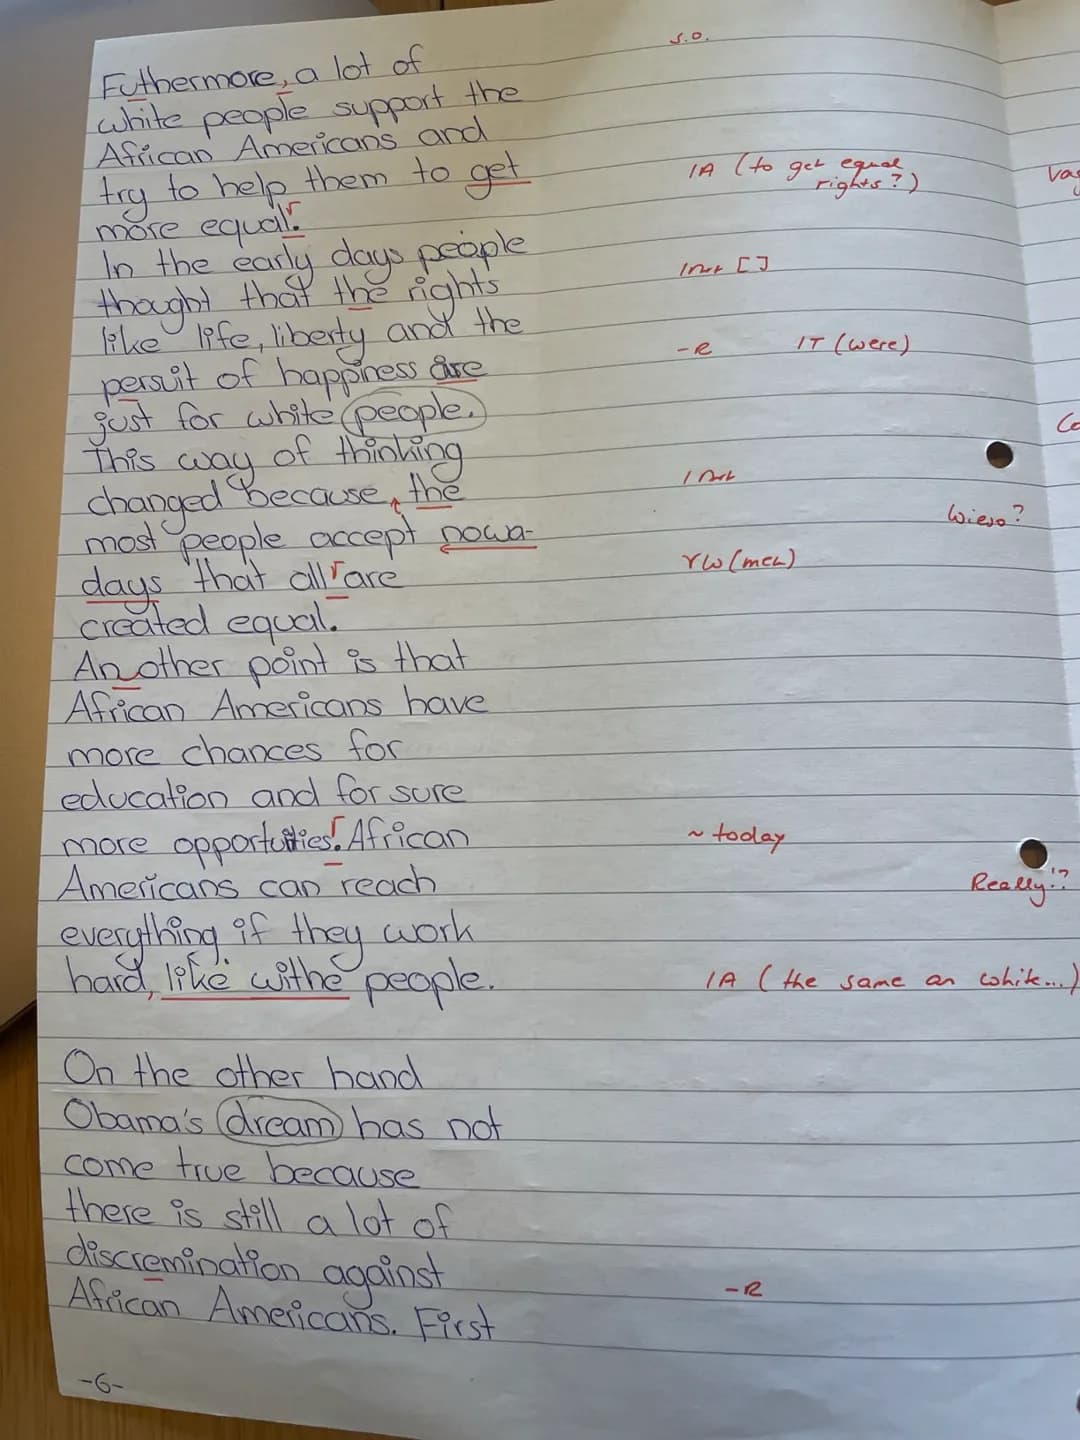 Futhermore, a lot of
s.o.
white people support the
African Americans and
try to help them to get
1A (to get equal
rights?)
more equal.
In the early days people
thought that the rights
like life, liberty and the
persuit of happiness are
-R IT (were)
just for white people.
This way of thinking
changed because, the
most people accept nowa-
Wieso?
days that all are
YW (men)
created equal.
An other point is that
African Americans have
more chances for
education and for sure
more opportuities. African
~ today
Americans can reach
Really!?
everything if they work
hard, like withe people.
1A (the same an white...)
On the other hand
Obama's dream has not
come true because
there is still a lot of
discremination against
-R
African Americans. First
-6-